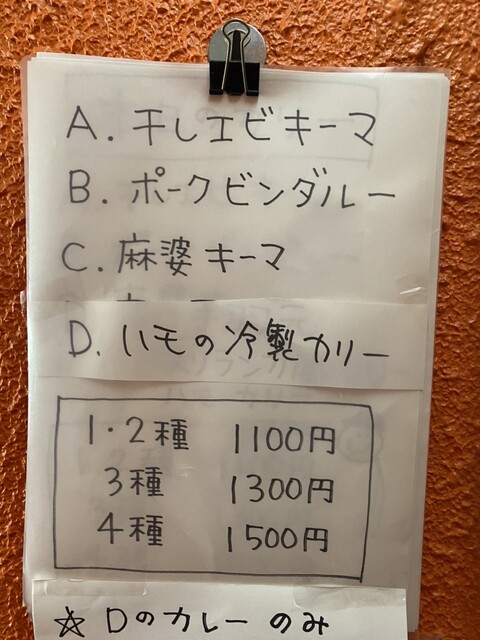 A. 干しエビキーマ
B. ポークビンダルー
C. 麻婆キーマ
D. ハモの冷製カリー
1・2種 1100円
3種 1300円
4種 1500円
☆ Dのカレーのみ